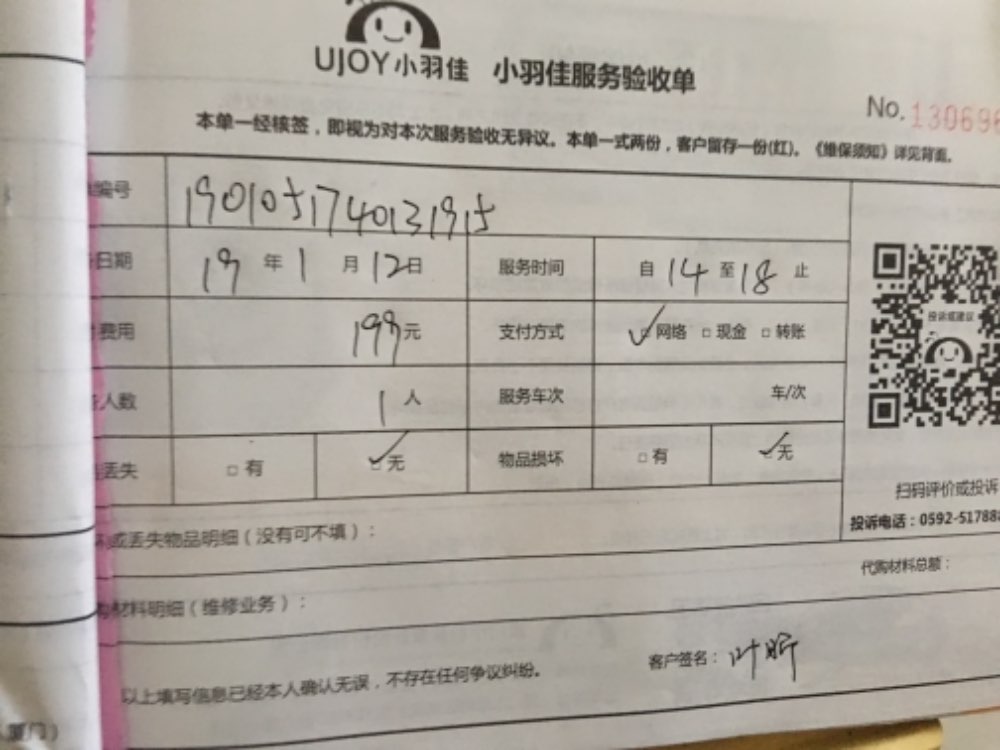 UJOY小羽佳 小羽佳服务验收单
No.13069
本单一经核签，即视为对本次服务验收无异议。本单一式两份，客户留存一份(红)。《维保须知》详见背面。
编号 190105174013195
日期 19年1月12日 服务时间 自14至18止
费用 199元 支付方式 ✓□网络 □现金 □转账
人数 1人 服务车次 车/次
丢失 □有 ✓□无 物品损坏 □有 ✓□无
投诉或建议
扫码评价或投诉
投诉电话：0592-51788
或丢失物品明细（没有可不填）：
代购材料总额：
材料明细（维修业务）：
以上填写信息已经本人确认无误，不存在任何争议纠纷。
客户签名：叶昕
厦门）